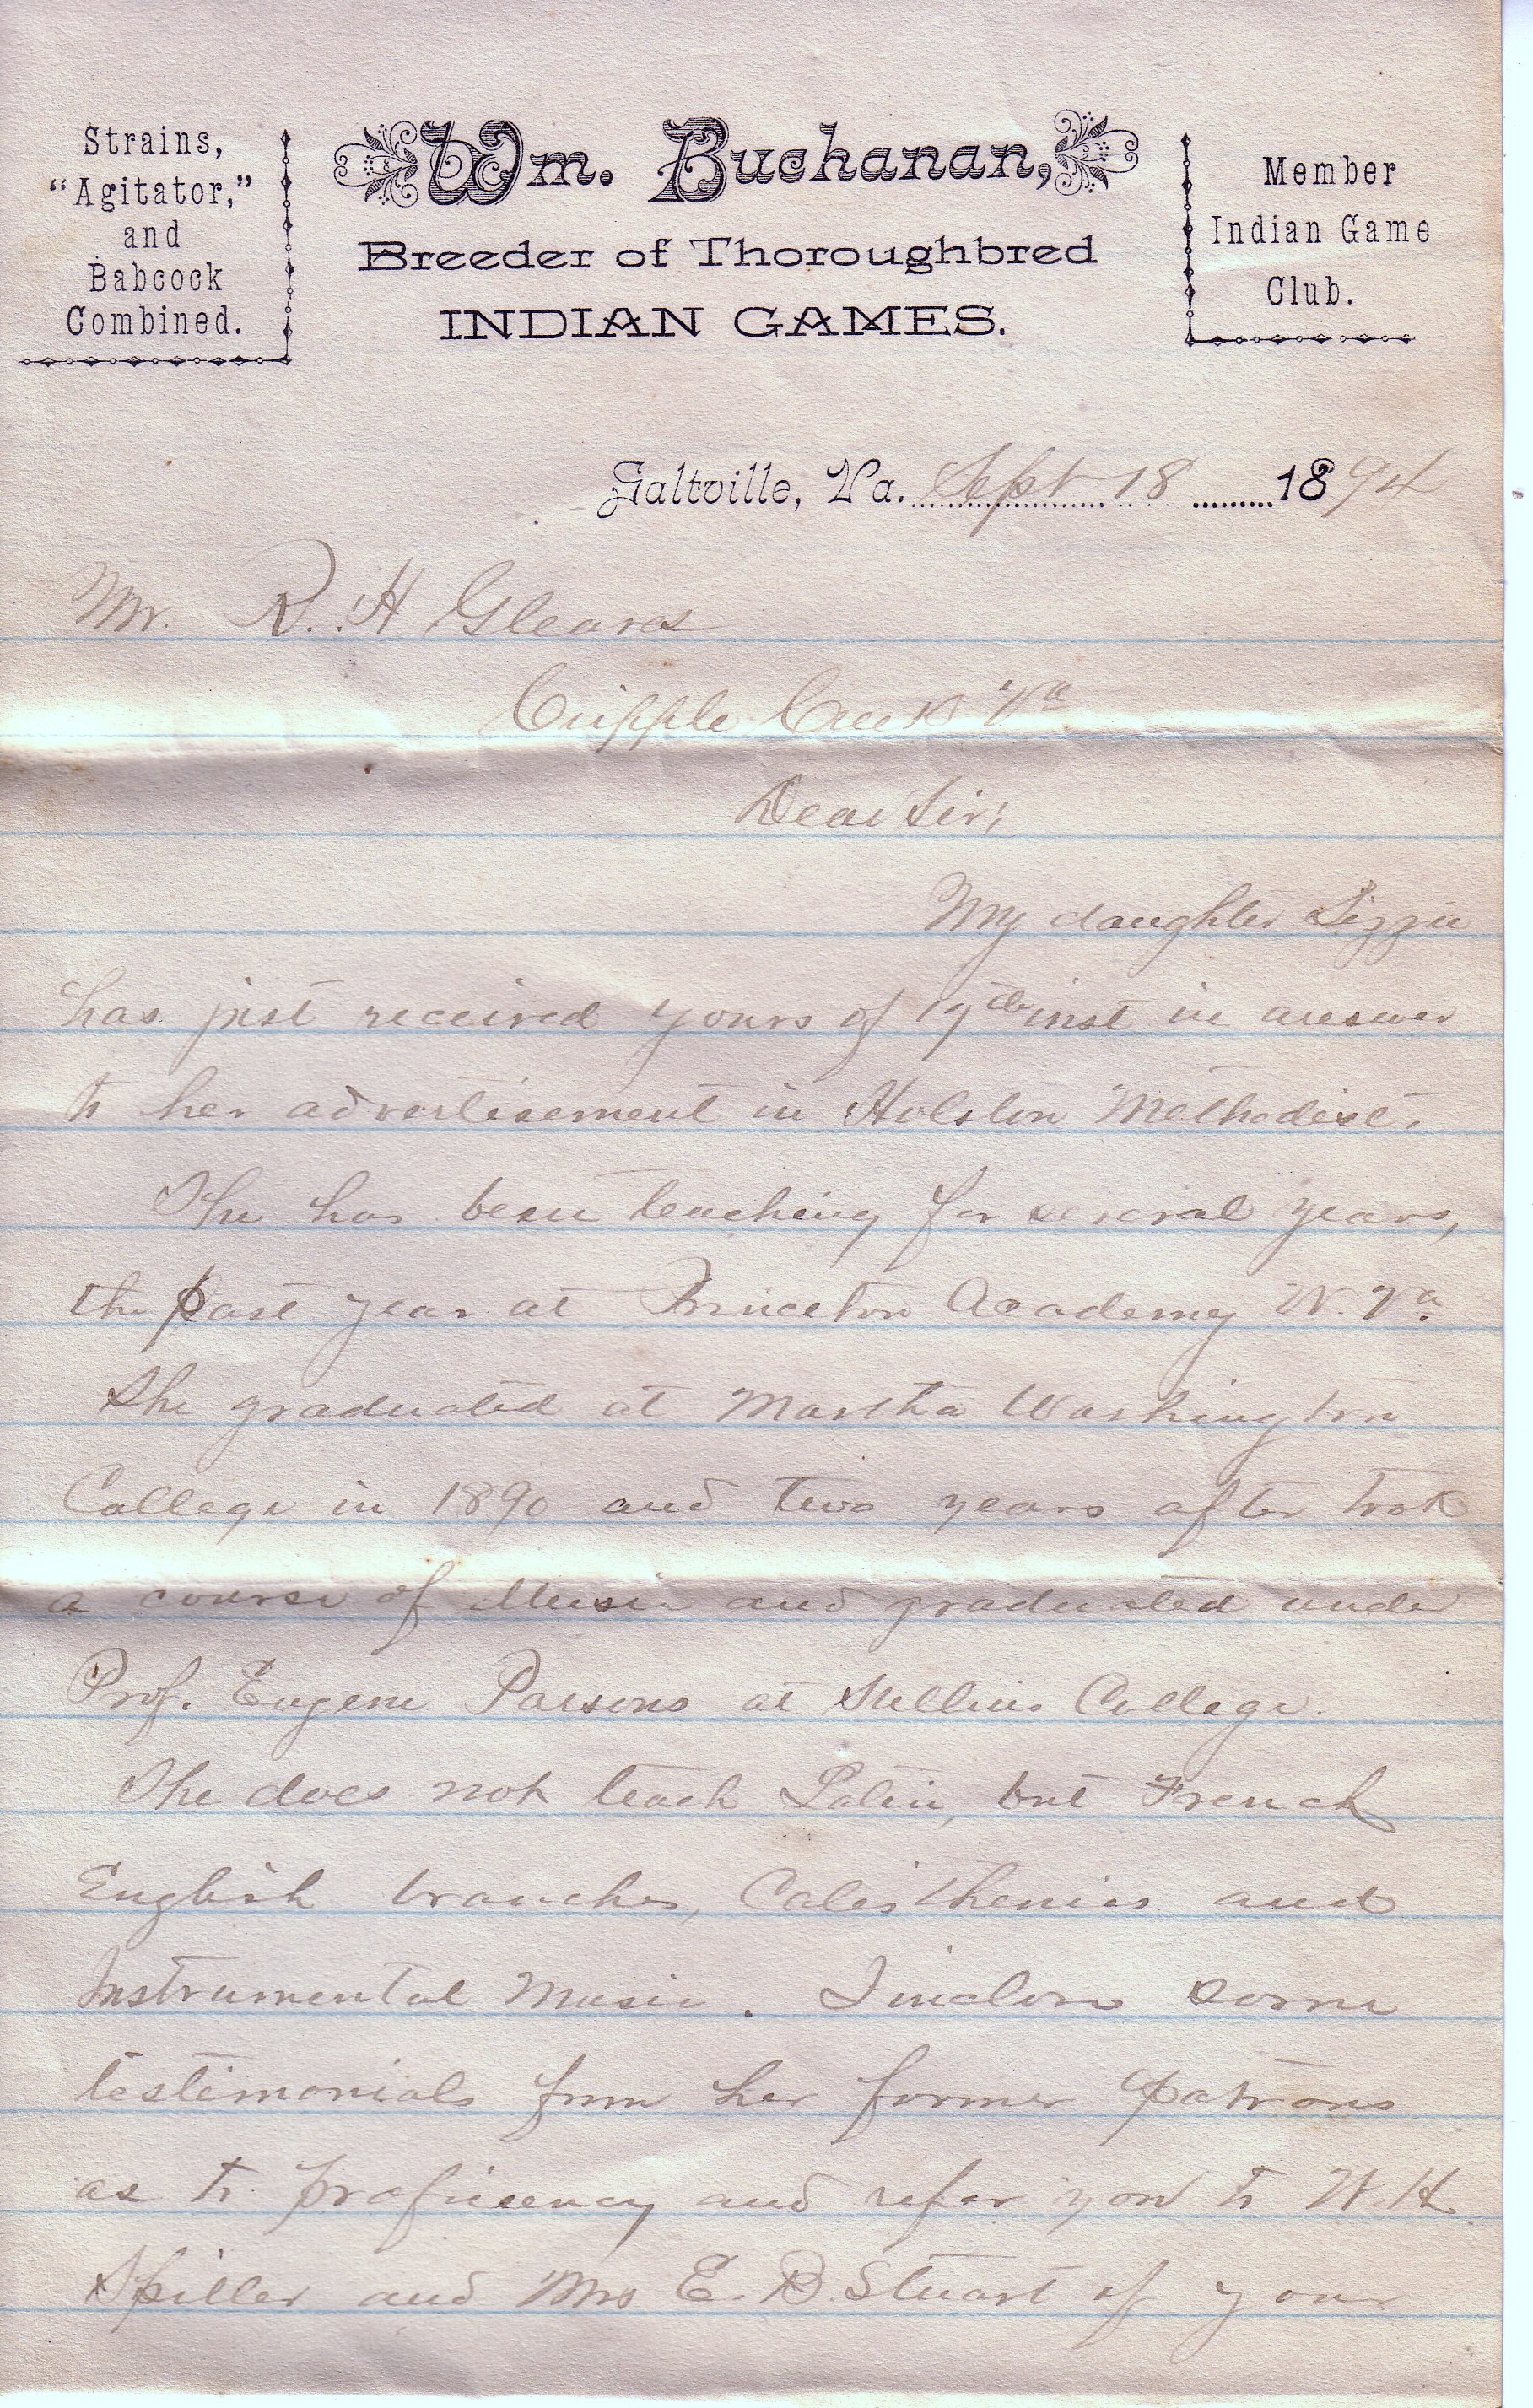 Strains,
"Agitator,"
and
Babcock
Combined.
Wm. Buchanan,
Breeder of Thoroughbred
INDIAN GAMES.
Member
Indian Game
Club.
Saltville, Va. Sept 18 1894
Mr. R. H Gleaves
Cripple Creek Va
Dear Sir;
My daughter Lizzie
has just received yours of 17th inst in answer
to her advertisement in Holston Methodist.
She has been teaching for several years,
the past year at Princeton Academy W. Va.
She graduated at Martha Washington
College in 1890 and two years after took
a course of Music and graduated under
Prof. Eugene Parsons at Sullins College.
She does not teach Latin, but French
English branches, Calisthenics and
Instrumental Music. I inclose some
testimonials from her former patrons
as to proficiency and refer you to W. H
Spiller and Mrs E. B. Stuart of your